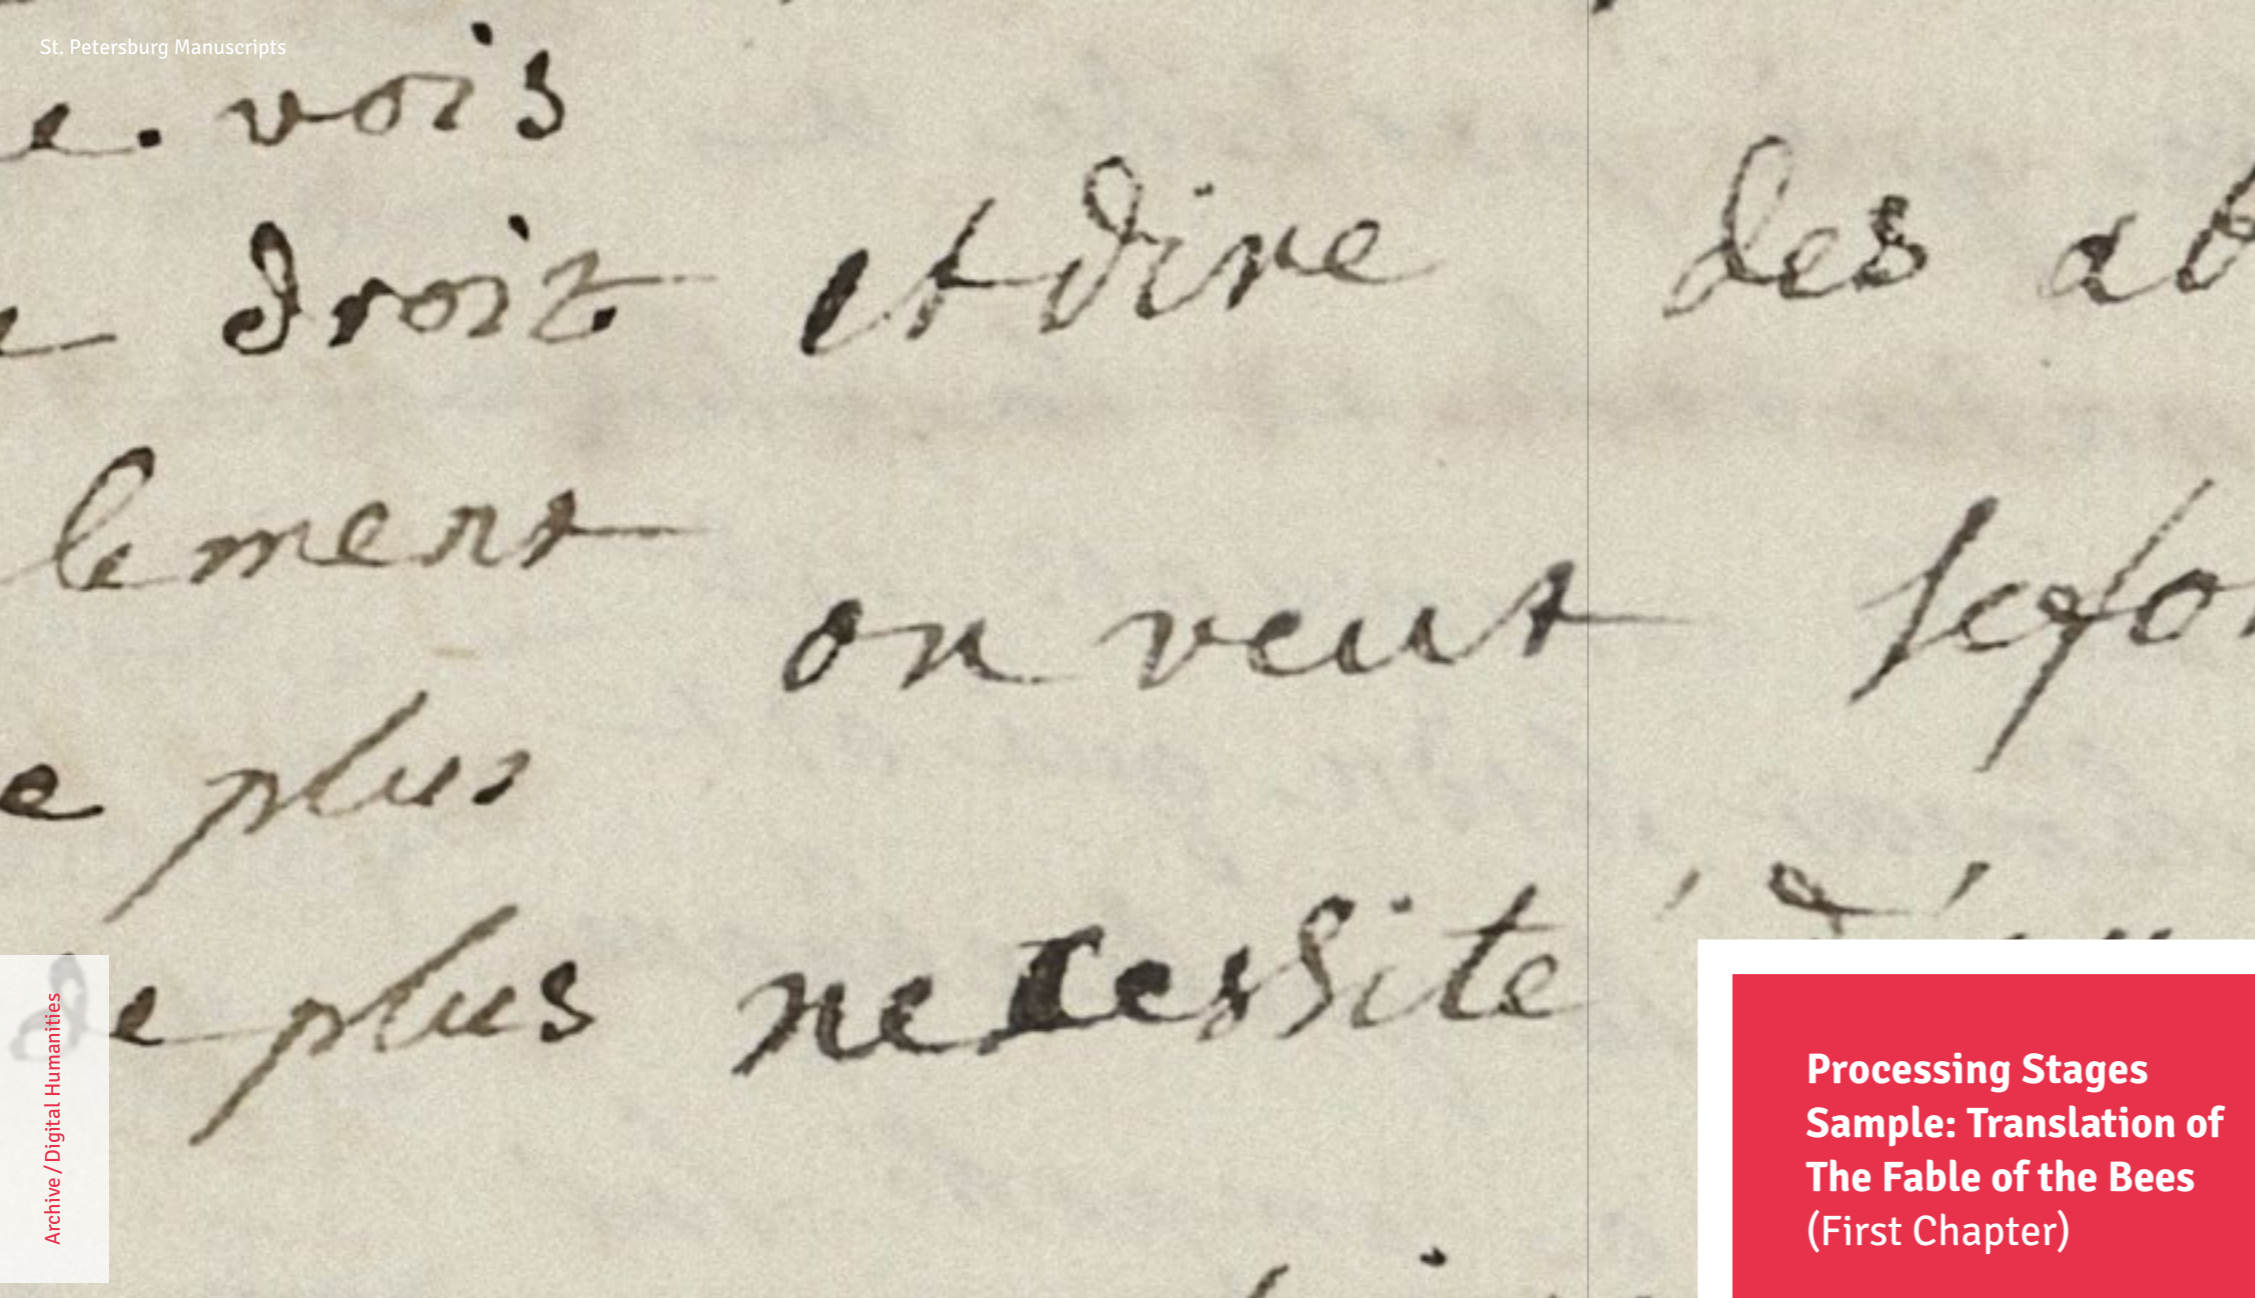 St. Petersburg Manuscripts
e. vois
droit et dire des
lement
on veut
e plus
de plus necessite
Archive / Digital Humanities
Processing Stages
Sample: Translation of
The Fable of the Bees
(First Chapter)